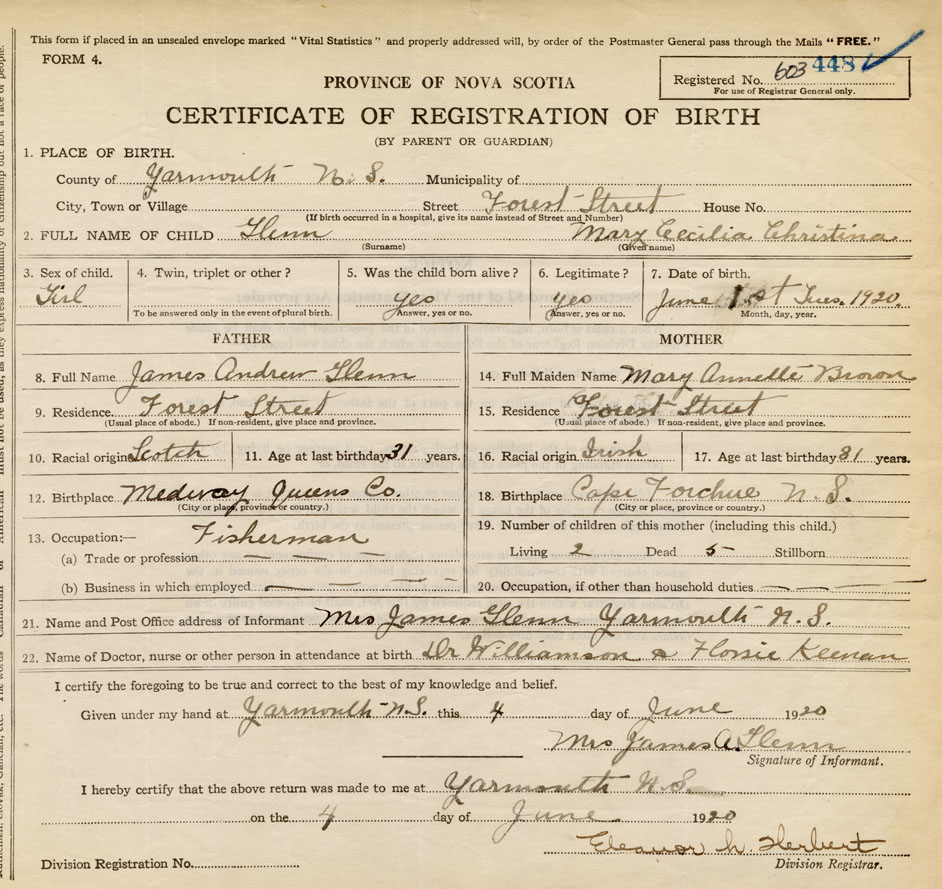 This form if placed in an unsealed envelope marked "Vital Statistics" and properly addressed will, by order of the Postmaster General pass through the Mails "FREE."
FORM 4.
Registered No. 603 448
For use of Registrar General only.
PROVINCE OF NOVA SCOTIA
CERTIFICATE OF REGISTRATION OF BIRTH
(BY PARENT OR GUARDIAN)
1. PLACE OF BIRTH.
County of Yarmouth N. S. Municipality of
City, Town or Village Street Forest Street House No.
(If birth occurred in a hospital, give its name instead of Street and Number)
2. FULL NAME OF CHILD Glenn Mary Cecilia Christina
(Surname) (Given name)
3. Sex of child. 4. Twin, triplet or other? 5. Was the child born alive? 6. Legitimate? 7. Date of birth.
Girl yes yes June 1st Tues. 1920.
To be answered only in the event of plural birth. Answer, yes or no. Answer, yes or no. Month, day, year.
FATHER MOTHER
8. Full Name James Andrew Glenn 14. Full Maiden Name Mary Annette Brown
9. Residence Forest Street 15. Residence Forest Street
(Usual place of abode.) If non-resident, give place and province. (Usual place of abode.) If non-resident, give place and province.
10. Racial origin Scotch 11. Age at last birthday 31 years. 16. Racial origin Irish 17. Age at last birthday 31 years.
12. Birthplace Medway Queens Co. 18. Birthplace Cape Forchue N. S.
(City or place, province or country.) (City or place, province or country.)
13. Occupation:— Fisherman 19. Number of children of this mother (including this child.)
(a) Trade or profession Living 2 Dead 5 Stillborn
(b) Business in which employed 20. Occupation, if other than household duties
21. Name and Post Office address of Informant Mrs James Glenn Yarmouth N. S.
22. Name of Doctor, nurse or other person in attendance at birth Dr Williamson & Florsie Keenan
I certify the foregoing to be true and correct to the best of my knowledge and belief.
Given under my hand at Yarmouth N.S. this 4 day of June 1920
Mrs James A. Glenn
Signature of Informant.
I hereby certify that the above return was made to me at Yarmouth N. S.
on the 4 day of June 1920
Eleanor h. Herbert
Division Registration No. Division Registrar.